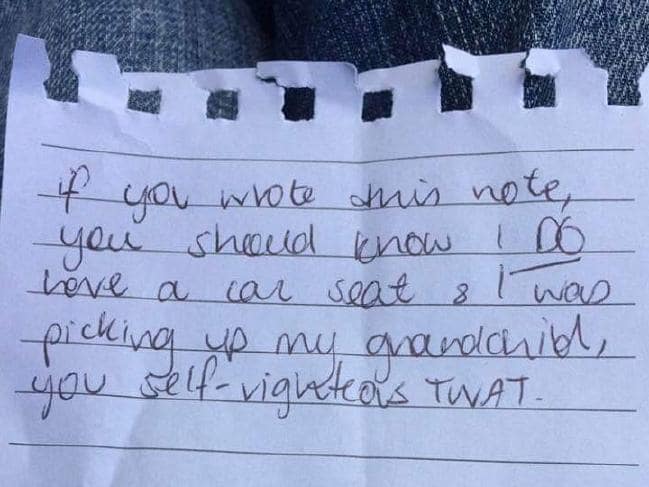 if you wrote this note,
you should know I DO
have a car seat & I was
picking up my grandchild,
you self-righteous TWAT.